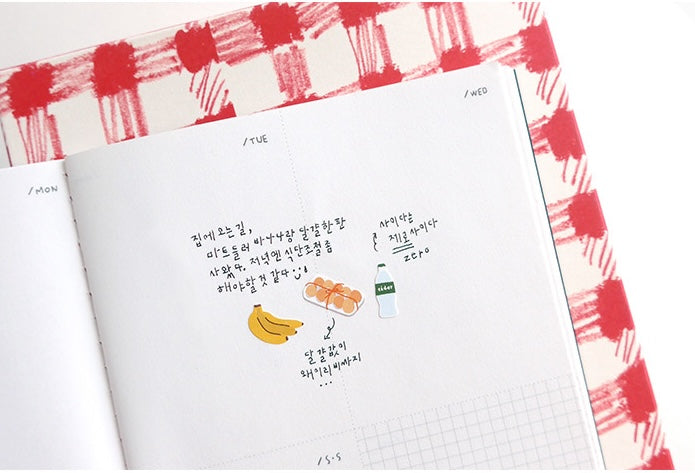 /MON
/TUE
/WED
집에 오는길,
마트들러 바나나랑 달걀한판
사왔다. 저녁엔 식단조절좀
해야할것 같다
사이다는
제로사이다
zero
cider
달걀값이
왜이리비싸지
...
/S·S